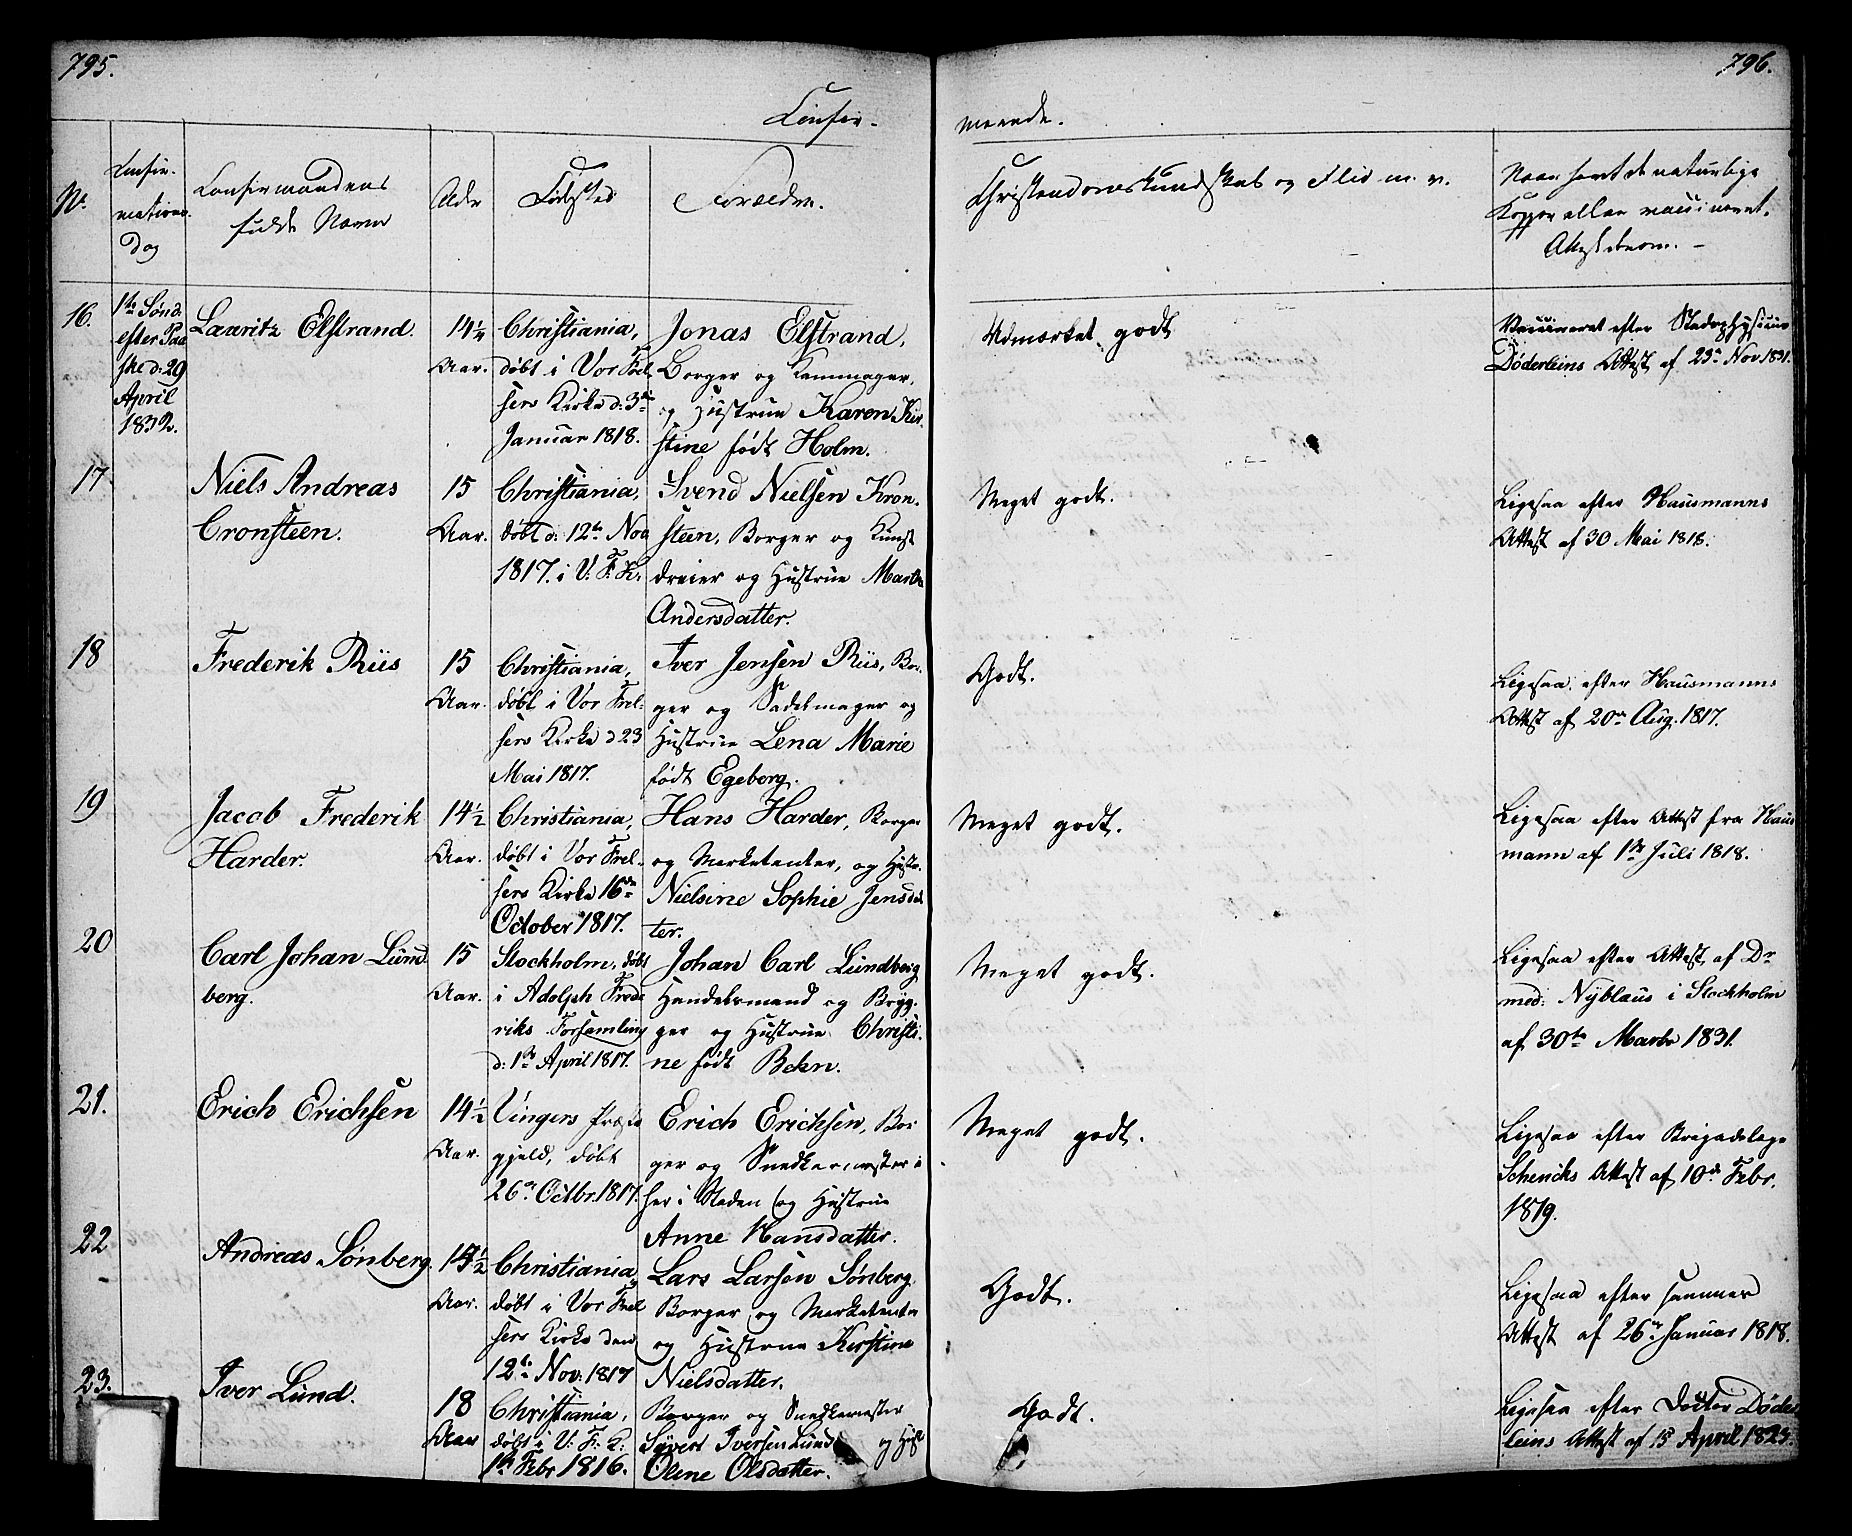 795.
796.
Confir-
merede.
No.
Confir-
mations
Dag
Confirmandens
fulde Navn
Alder
Födsted
Forældre.
Christendomskundskab og Flid m. v.
Naar havt de naturlige
Kopper eller vaccineret.
Attest derom. -
16.
1te Sönd.
efter Paa
ske d: 29
April
1832.
Lauritz Elstrand.
14½
Aar.
Christiania,
döbt i Vor Frel
sers Kirke d: 3die
Januar 1818.
Jonas Elstrand,
Borger og Kammager,
og Hustrue Karen Kir-
stine födt Holm.
Udmærket godt
Vaccineret efter Stadsphysicus
Döderleins Attest af 23de Nov 1831.
17
Niels Andreas
Cronsteen.
15
Aar.
Christiania,
döbt d: 12te Nov
1817. i V. F. K.
Svend Nielsen Kron-
steen, Borger og Kunst
dreier og Hustrue Marthe
Andersdatter.
Meget godt.
Ligesaa efter Hausmanns
Attest af 30 Mai 1818.
18
Frederik Riis
15
Aar.
Christiania,
döbt i Vor Frel-
sers Kirke d 23
Mai 1817.
Iver Jensen Riis, Bor-
ger og Sadelmager og
Hustrue Lena Marie
födt Egeberg.
Godt.
Ligesaa efter Hausmanns
Attest af 20de Aug. 1817.
19
Jacob Frederik
Harder.
14½
Aar.
Christiania,
döbt i Vor Frel-
sers Kirke 16de
October 1817.
Hans Harder, Borger
og Marketenter, og Hustr.
Nielsine Sophie Jensdat
ter.
Meget godt.
Ligesaa efter Attest fra Haus
mann af 1ste Juli 1818.
20
Carl Johan Lund
berg.
15
Aar.
Stockholm, döbt
i Adolph Frede
riks Forsamling
d: 1ste April 1817.
Johan Carl Lundberg
Handelsmand og Bryg-
ger og Hustrue Christi-
ne födt Behn.
Meget godt.
Ligesaa efter Attest af Dr
med: Nyblaus i Stockholm
af 30te Marts 1831.
21.
Erich Erichsen
14½
Aar.
Vingers Præste
gjeld, döbt
26de Octbr 1817.
Erich Erichsen, Bor
ger og Snedkermester
her i Staden og Hustrue
Anne Hansdatter.
Meget godt.
Ligesaa efter Brigadelæge
Schencks Attest af 10de Febr.
1819.
22
Andreas Sönberg.
½
Aar.
Christiania,
döbt i Vor Frel
sers Kirke den
12te Nov. 1817
Lars Larsen Sönberg
Borger og Marketenter
og Hustrue Kirstine
Nielsdatter.
Godt.
Ligesaa efter sammes
Attest af 26de Januar 1818.
23.
Iver Lund.
18
Aar
Christiania,
döbt i V. F. K:
1ste Febr 1816.
Borger og Snedkermester
Sÿvert Iversen Lund og Hust
Oline Olsdatter.
Godt.
Ligesaa efter Doctor Döder
leins Attest af 15 April 1823.